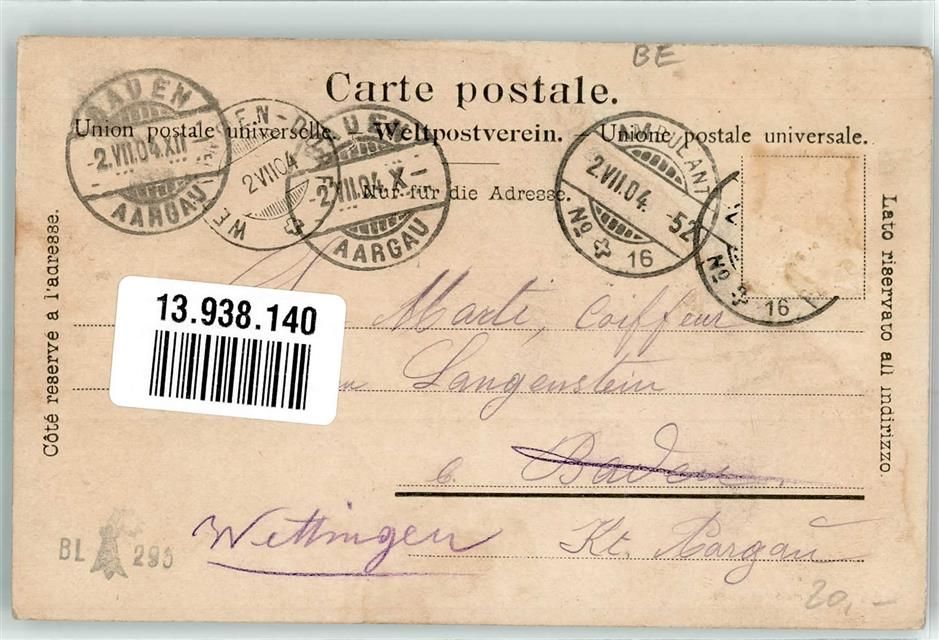 BE
Carte postale.
Union postale universelle. – Weltpostverein. – Unione postale universale.
Nur für die Adresse.
BADEN
-2.VII.04.XII
AARGAU
2VII04
BADEN
-2.VII.04.X-
AARGAU
AMBULANT
2VII.04. -52
No 16
No 16
Côté réservé à l'adresse.
Lato riservato all indirizzo.
13.938.140
Marti, Coiffeur
Langenstein
b. Baden
Wettingen
Kt. Aargau
BL 295
20,-